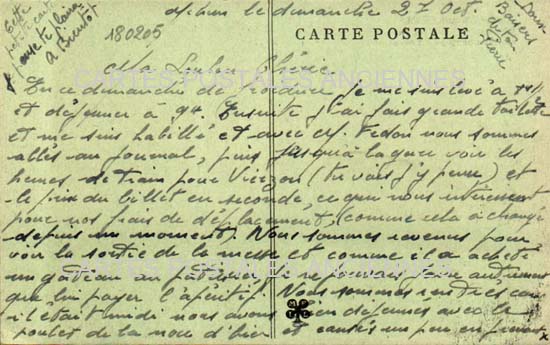 Mehun le dimanche 27 Oct.
Cette
petite carte
pour te faire
à Bientot
180205
CARTE POSTALE
Doux
Baisers
de ton
Pierre
Ma Chérie
En ce dimanche de je me suis levé à
et déjeuner à 9h. Ensuite j'ai fait grande toilette
et me suis habillé et avec Mr. nous sommes
allés au journal, puis jusqu'à la gare voir les
heures de train pour Vierzon (tu vois j'y pense) et
le prix du billet en seconde, ce qui nous intéressent
pour nos frais de déplacement, (comme cela a changé
depuis un moment). Nous sommes revenus pour
voir la sortie de la messe et comme il a acheté
un gâteau au patissier je ne pouvais faire autrement
que lui payer l'apéritif. Nous sommes rentrés car
il était midi nous avons bien déjeunés avec le
poulet de la noce d'hier et causés un peu en fumant
CARTES POSTALES ANCIENNES
CARTES POSTALES ANCIENNES